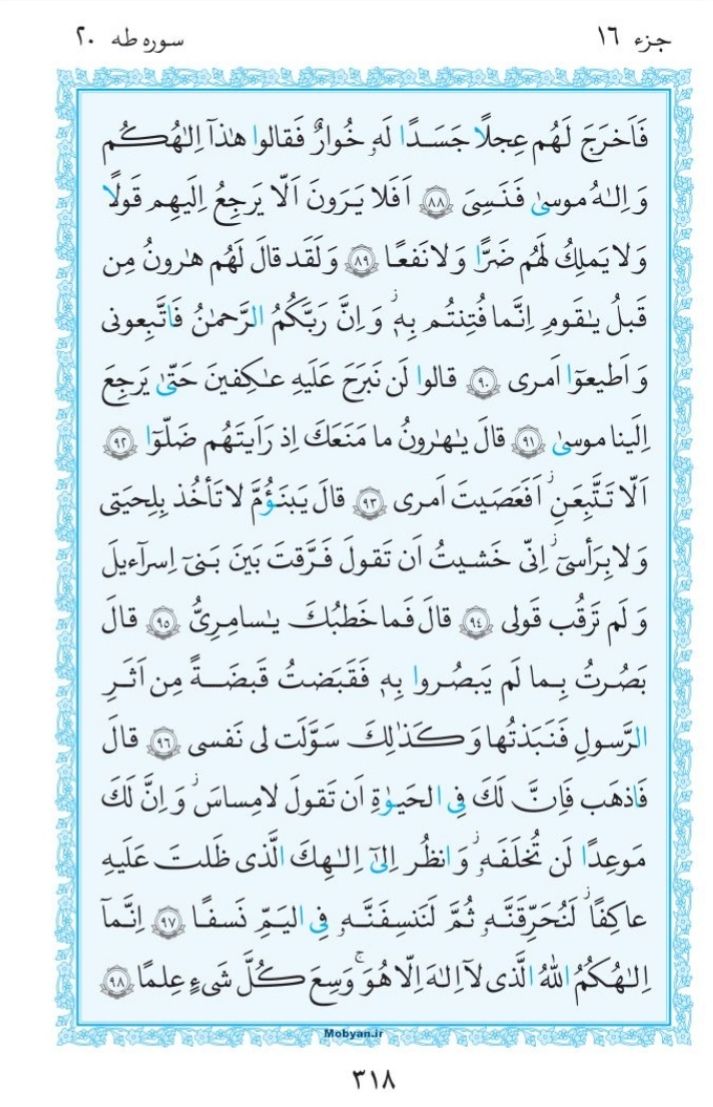 سوره طه ٢٠
جزء ١٦
فَاَخرَجَ لَهُم عِجلًا جَسَدًا لَهٗ خُوارٌ فَقالوا هٰذَآ اِلٰهُكُم
وَ اِلٰهُ موسىٰ فَنَسِىَ ﴿٨٨﴾ اَفَلا يَرَونَ اَلّا يَرجِعُ اِلَيهِم قَولًا
وَ لا يَملِكُ لَهُم ضَرًّا وَ لا نَفعًا ﴿٨٩﴾ وَ لَقَد قالَ لَهُم هٰرونُ مِن
قَبلُ يٰقَومِ اِنَّما فُتِنتُم بِهٖۖ وَ اِنَّ رَبَّكُمُ الرَّحمٰنُ فَاتَّبِعونى
وَ اَطيعوٓا اَمرى ﴿٩٠﴾ قالوا لَن نَبرَحَ عَلَيهِ عٰكِفينَ حَتّىٰ يَرجِعَ
اِلَينا موسىٰ ﴿٩١﴾ قالَ يٰهٰرونُ ما مَنَعَكَ اِذ رَاَيتَهُم ضَلّوٓا ﴿٩٢﴾
اَلّا تَتَّبِعَنِۖ اَفَعَصَيتَ اَمرى ﴿٩٣﴾ قالَ يَبنَؤُمَّ لا تَأخُذ بِلِحيَتى
وَ لا بِرَأسىٓۖ اِنّى خَشيتُ اَن تَقولَ فَرَّقتَ بَينَ بَنىٓ اِسرآءيلَ
وَ لَم تَرقُب قَولى ﴿٩٤﴾ قالَ فَما خَطبُكَ يٰسامِرِىُّ ﴿٩٥﴾ قالَ
بَصُرتُ بِما لَم يَبصُروا بِهٖ فَقَبَضتُ قَبضَةً مِن اَثَرِ
الرَّسولِ فَنَبَذتُها وَ كَذٰلِكَ سَوَّلَت لى نَفسى ﴿٩٦﴾ قالَ
فَاذهَب فَاِنَّ لَكَ فِى الحَيوٰةِ اَن تَقولَ لا مِساسَۖ وَ اِنَّ لَكَ
مَوعِدًا لَن تُخلَفَهٗۖ وَ انظُر اِلىٰٓ اِلٰهِكَ الَّذى ظَلتَ عَلَيهِ
عاكِفًاۖ لَنُحَرِّقَنَّهٗ ثُمَّ لَنَنسِفَنَّهٗ فِى اليَمِّ نَسفًا ﴿٩٧﴾ اِنَّمآ
اِلٰهُكُمُ اللهُ الَّذى لآ اِلٰهَ اِلّا هُوَۚ وَسِعَ كُلَّ شَىءٍ عِلمًا ﴿٩٨﴾
Mobyan.ir
٣١٨